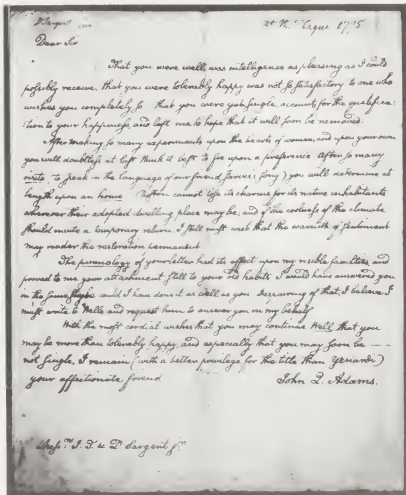 D. Sargent
at the Hague 1795
Dear Sir
That you were well, was intelligence as pleasing as I could
possibly receive. that you were tolerably happy was not so satisfactory to one who
wishes you completely so that you were yet single, accounts for the qualifica:
:tion to your happiness, and left me to hope that it will soon be removed.
After making so many experiments upon the hearts of women, and upon your own
you will doubtless at last think it best to fix upon a preference After so many
visits (to speak in the language of our friend Jarvis's song) you will determine at
length upon an home Boston cannot lose its charms for its native inhabitants
wherever their adopted dwelling place may be; and if the coolness of the climate
should invite a temporary return, I still must wish that the warmth of sentiment
may render the restoration permanent
The punnology of your letter had its effect upon my risible faculties, and
proved to me your attachment still to your old habits I would have answered you
in the same could I have done it as well as you Despairing of that, I believe I
must write to Wells and request him to answer you in my behalf
With the most cordial wishes that you may continue Well, that you
may be more than tolerably happy, and especially that you may soon be —
not single. I remain (with a better privilege for the title than
your affectionate friend
John Q. Adams.
Sargent